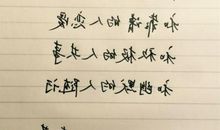 和靠谱的人恋爱
和积极的人共事
和幽默的人随行